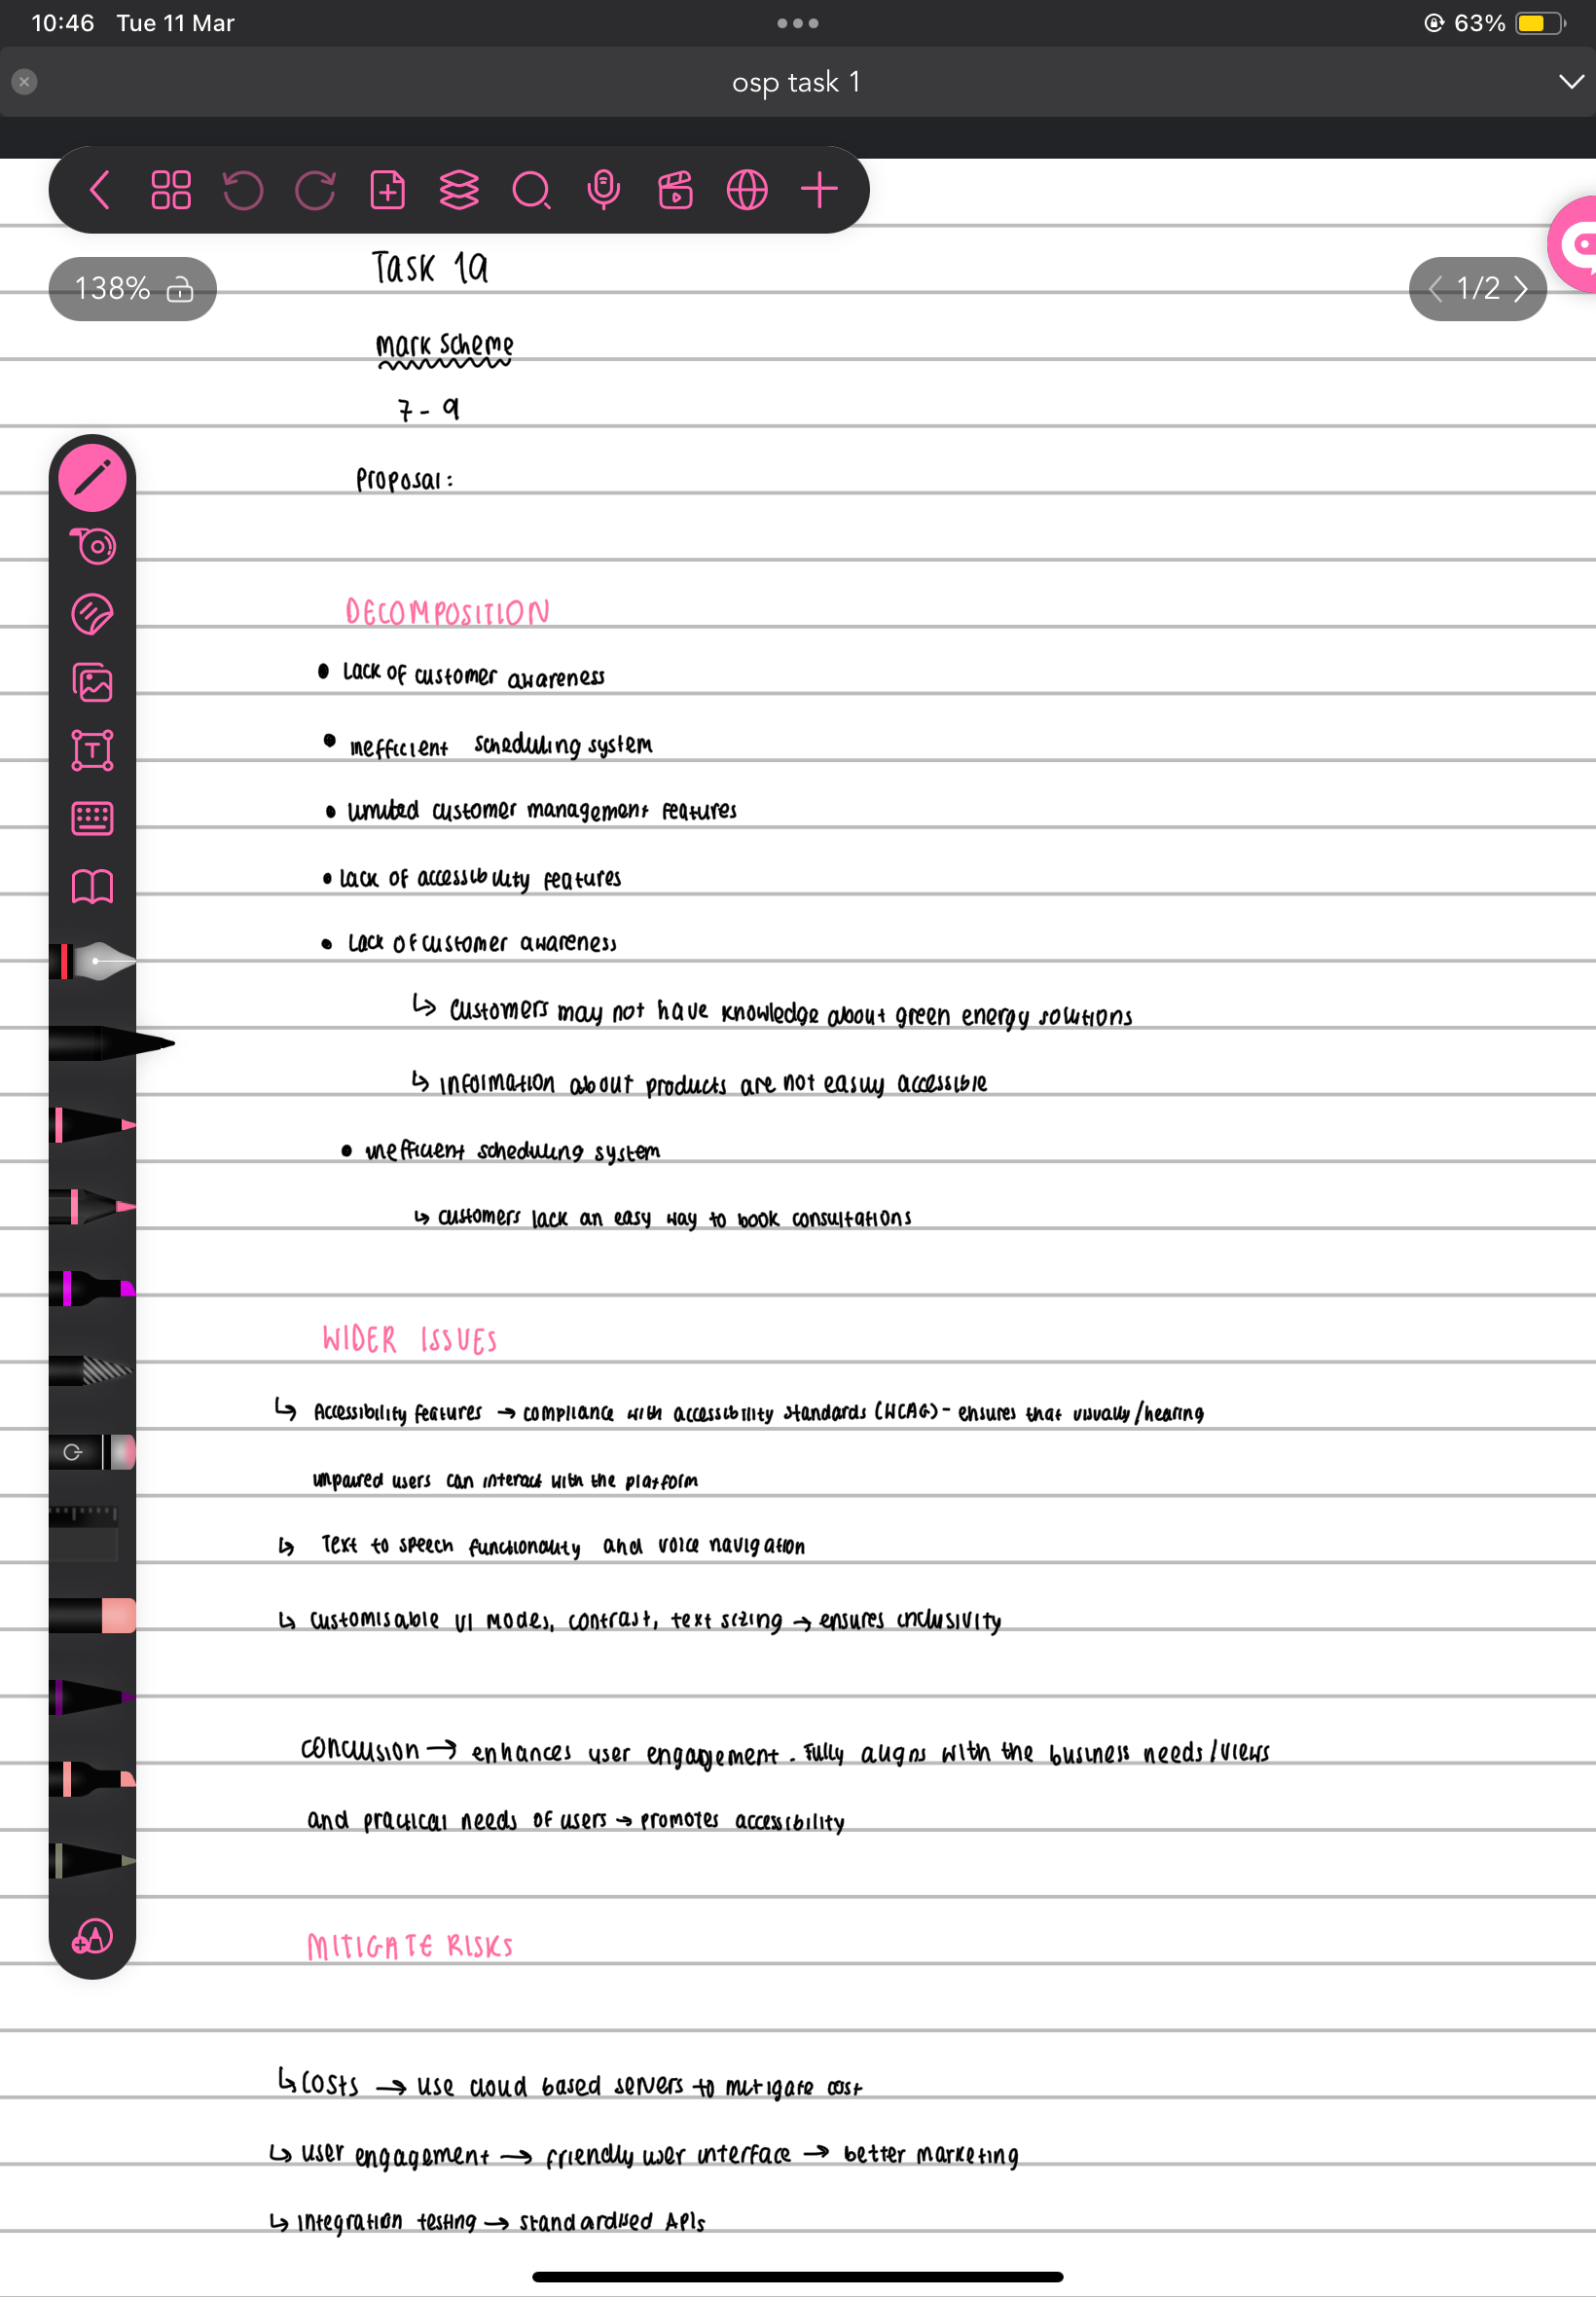 10:46 Tue 11 Mar 63%
osp task 1
Task 1a
138% 1/2
mark scheme
7 - 9
Proposal:
DECOMPOSITION
• Lack of customer awareness
• inefficient scheduling system
• limited customer management features
• lack of accessibility features
• Lack of customer awareness
↳ Customers may not have knowledge about green energy solutions
↳ information about products are not easily accessible
• inefficient scheduling system
↳ customers lack an easy way to book consultations
WIDER ISSUES
↳ Accessibility features → compliance with accessibility standards (WCAG) - ensures that visually/hearing
impaired users can interact with the platform
↳ Text to speech functionality and voice navigation
↳ customisable UI modes, contrast, text sizing → ensures inclusivity
conclusion → enhances user engagement. Fully aligns with the business needs/views
and practical needs of users → promotes accessibility
MITIGATE RISKS
↳ costs → use cloud based servers to mitigate cost
↳ user engagement → friendly user interface → better marketing
↳ integration testing → standardised APIs